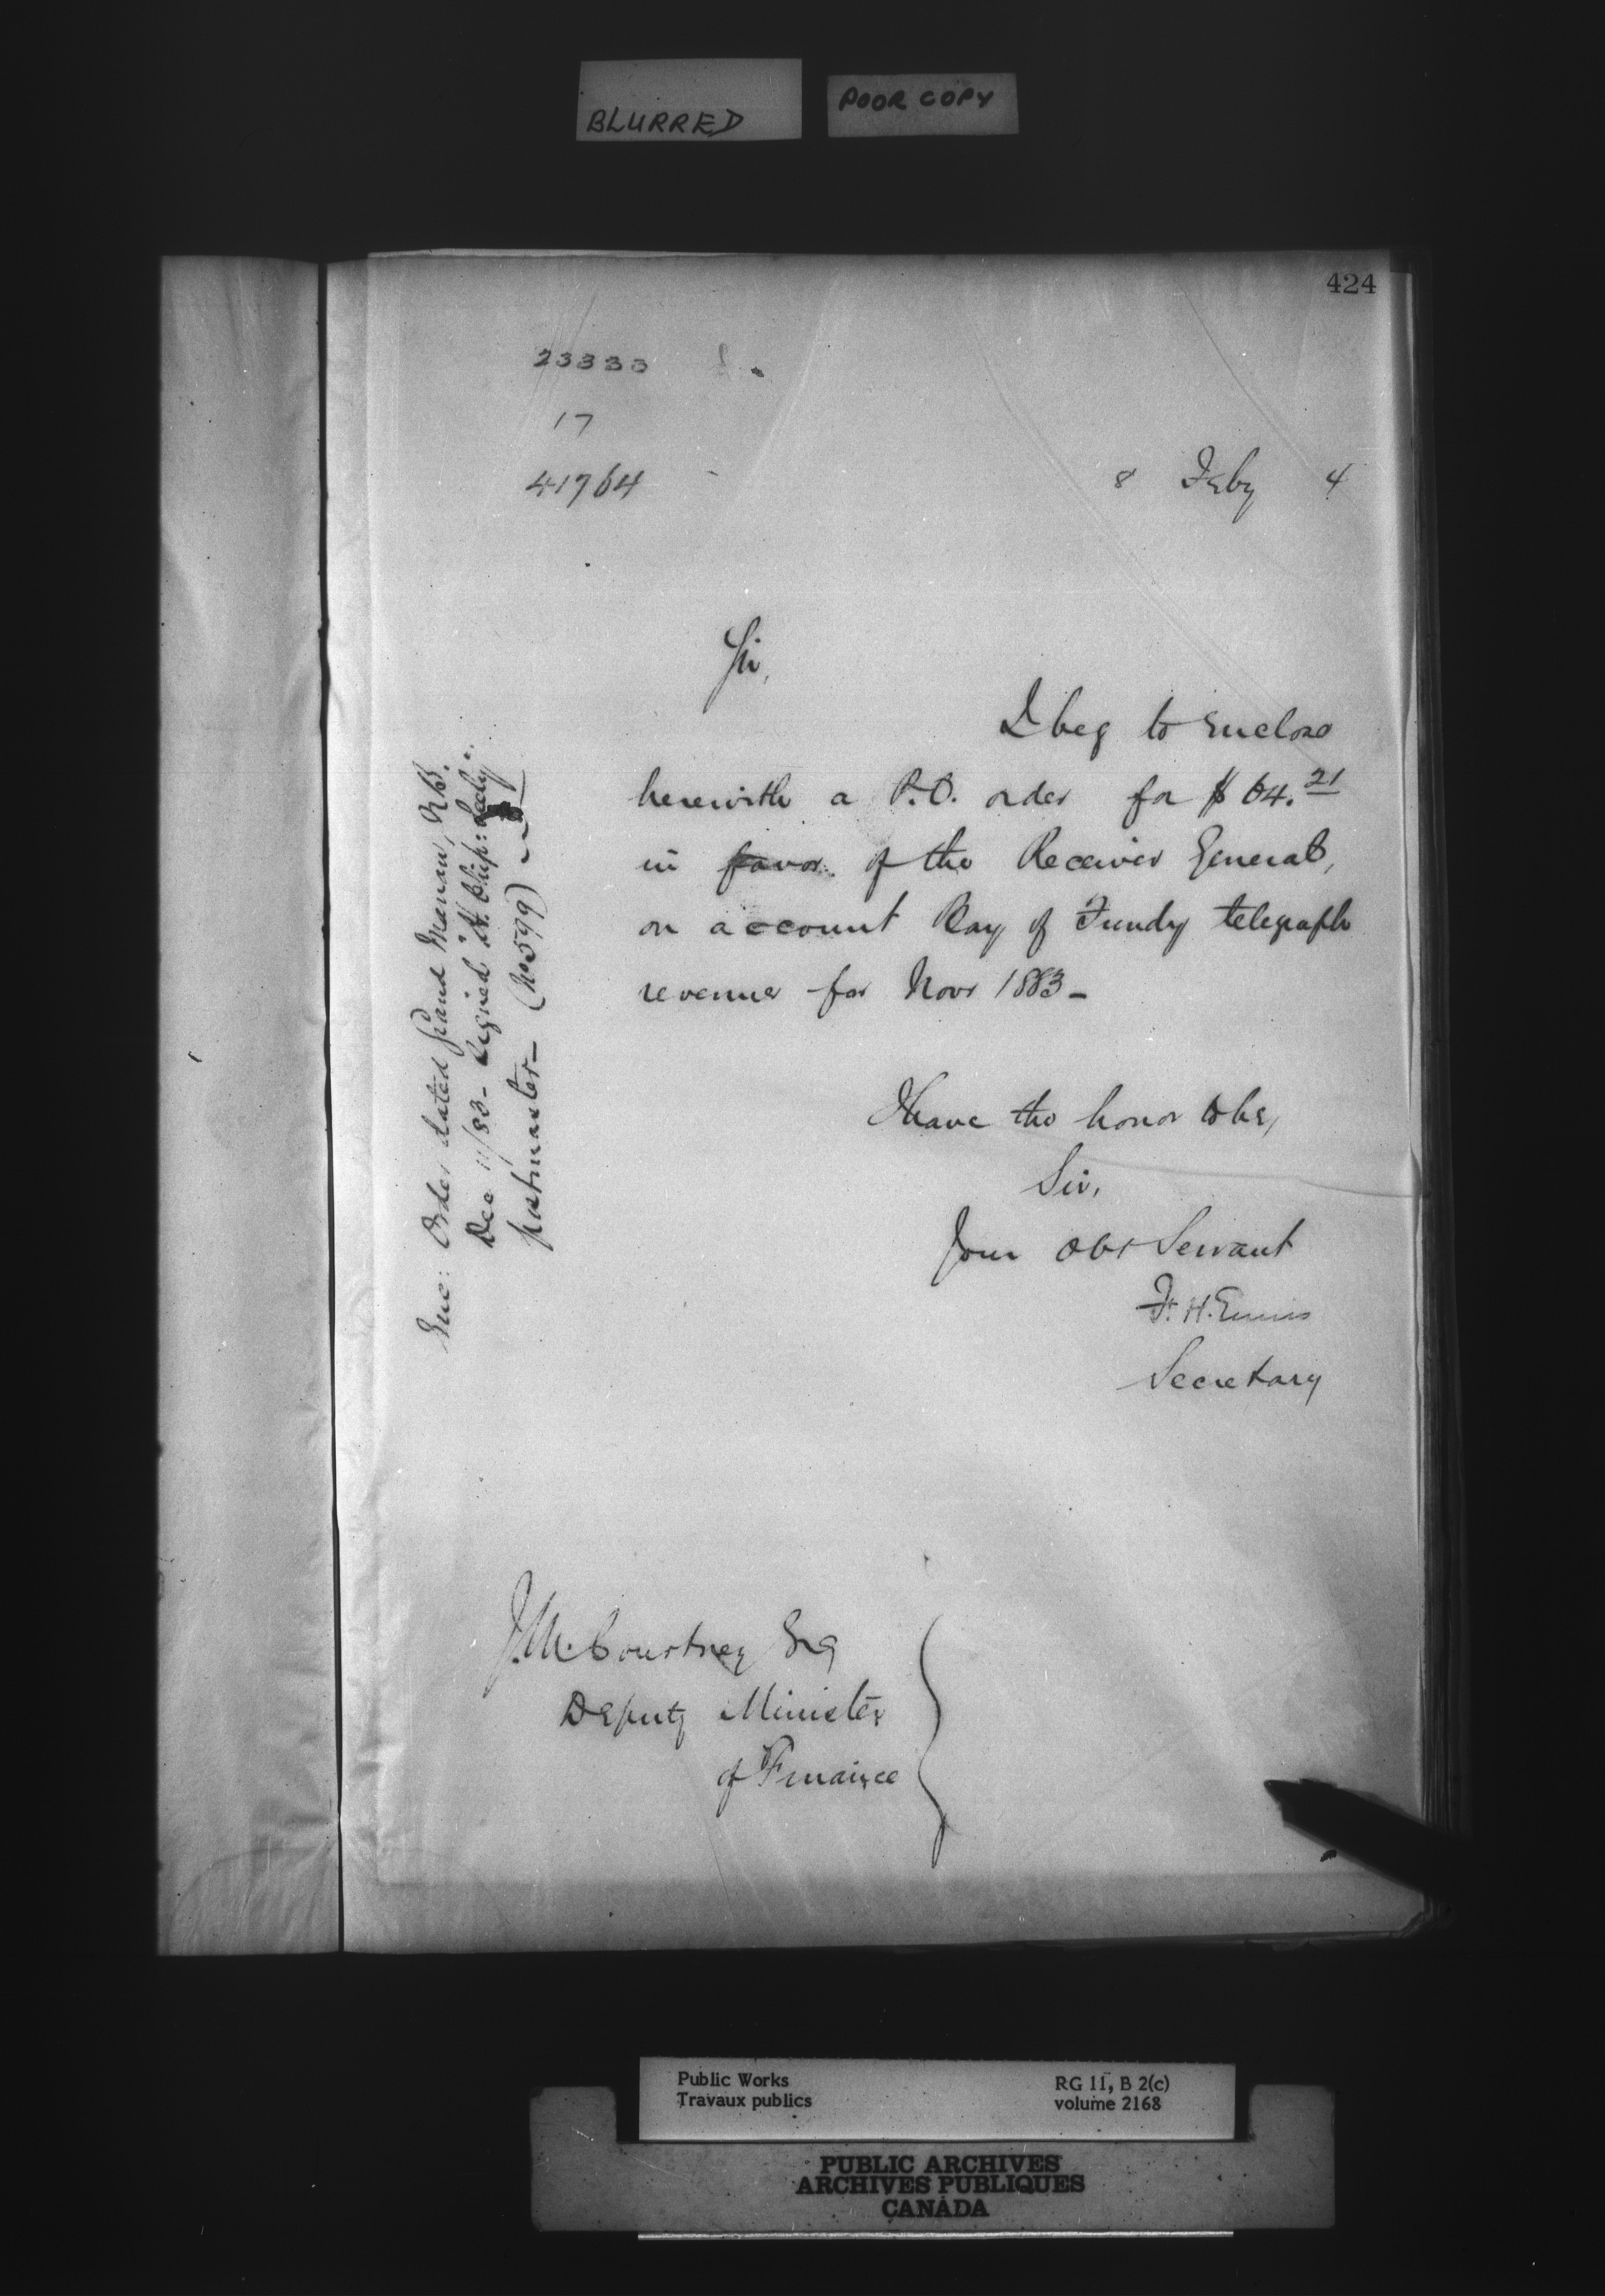 BLURRED
POOR COPY
424
23333
17
41764
8 Feby 4
Sir,
I beg to Enclose
herewith a P.O. order for $ 64.21
in favor of the Receiver General,
on account Bay of Fundy telegraph
revenue for Novr 1883 -
I have the honor to be,
Sir,
Your Obt Servant
F. H. Ennis
Secretary
Enc: Order dated Grand Manan, N.B.
Dec 11/83 - Signed "H.
postmaster - (No 599)
J. M. Courtney Esq
Deputy Minister
of Finance
Public Works
Travaux publics
RG 11, B 2(c)
volume 2168
PUBLIC ARCHIVES
ARCHIVES PUBLIQUES
CANADA